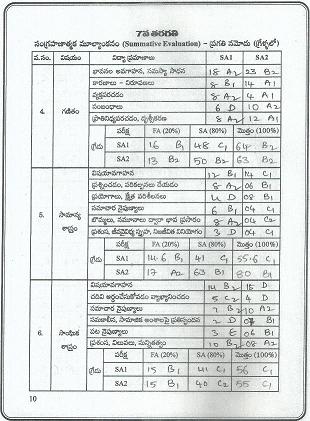 7వ తరగతి
సంగ్రహణాత్మక మూల్యాంకనం (Summative Evaluation) – ప్రగతి నమోదు (గ్రేళ్ళలో)
వ.సం. విషయం విద్యా ప్రమాణాలు SA1 SA2
భావనల అవగాహన, సమస్యా సాధన 18 A2 23 B2
కారణాలు - నిరూపణలు 8 B1 14 A1
వ్యక్తపరచడం 8 A2 4 A1
4. గణితం సంబంధాలు 6 D 10 A2
ప్రాతినిధ్యపరచడం, దృశ్యీకరణ 8 A2 12 A1
పరీక్ష FA (20%) SA (80%) మొత్తం (100%)
గ్రేడు SA1 16 B1 48 C1 64 B2
SA2 13 B2 50 B2 63 B2
విషయావగాహన 12 B1 14 C1
ప్రశ్నించడం, పరికల్పనలు చేయడం 8 A2 06 B1
ప్రయోగాలు, క్షేత్ర పరిశీలనలు 4 D 08 B1
5. సామాన్య శాస్త్రం సమాచార నైపుణ్యాలు 6 B1 04 C1
బొమ్మలు, నమూనాలు ద్వారా భావ ప్రసారం 8 A2 04 C2
ప్రశంస, జీవవైవిధ్య స్పృహ, నిజజీవిత వినియోగం 3 D 04 C1
పరీక్ష FA (20%) SA (80%) మొత్తం (100%)
గ్రేడు SA1 14.6 B1 41 C1 55.6 C1
SA2 17 A2 63 B1 80 B1
విషయావగాహన 14 B2 15 D
చదివి అర్థంచేసుకోవడం వ్యాఖ్యానించడం 5 C2 4 D
సమాచార నైపుణ్యాలు 7 B2 10 A2
6. సాంఘిక శాస్త్రం సమకాలీన, సామాజిక అంశాలపై ప్రతిస్పందన 2 D 07 B1
పట నైపుణ్యాలు 3 E 06 B1
ప్రశంస, విలువలు, సున్నితత్వం 10 B2 08 A2
పరీక్ష FA (20%) SA (80%) మొత్తం (100%)
గ్రేడు SA1 15 B1 41 C1 56 C1
SA2 15 B1 40 C2 55 C1
10